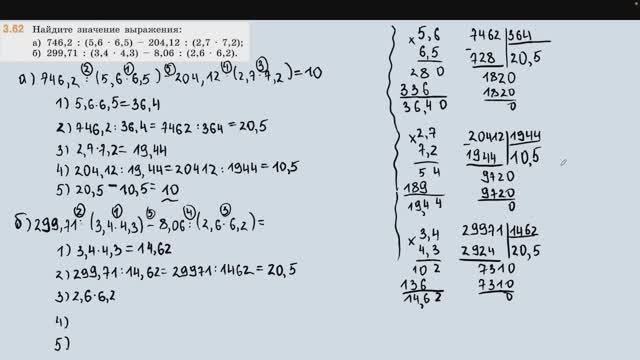 3.62 Найдите значение выражения:
а) 746,2 : (5,6 · 6,5) − 204,12 : (2,7 · 7,2);
б) 299,71 : (3,4 · 4,3) − 8,06 : (2,6 · 6,2).
② ① ⑤ ④ ③
а) 746,2 : (5,6·6,5) − 204,12 : (2,7·7,2) = 10
1) 5,6·6,5 = 36,4
2) 746,2 : 36,4 = 7462 : 364 = 20,5
3) 2,7·7,2 = 19,44
4) 204,12 : 19,44 = 20412 : 1944 = 10,5
5) 20,5 − 10,5 = 10
② ① ⑤ ④ ③
б) 299,71 : (3,4·4,3) − 8,06 : (2,6·6,2) =
1) 3,4·4,3 = 14,62
2) 299,71 : 14,62 = 29971 : 1462 = 20,5
3) 2,6·6,2
4)
5)
× 5,6
6,5
28 0
336
36,40
7462 | 364
− 728 | 20,5
1820
1820
0
× 2,7
7,2
5 4
189
19,44
− 20412 | 1944
1944 | 10,5
9720
9720
0
× 3,4
4,3
10 2
136
14,62
29971 | 1462
2924 | 20,5
7310
7310
0